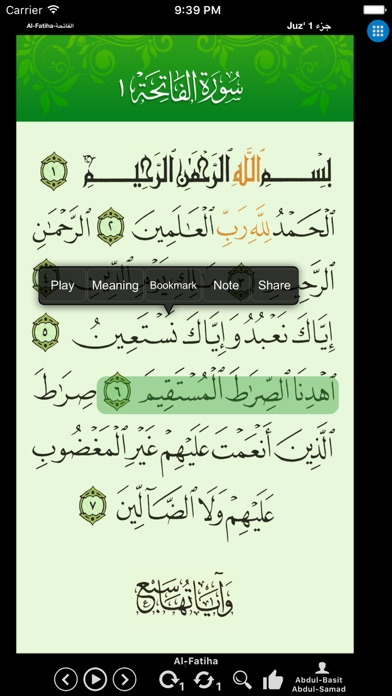 Carrier 9:39 PM
Al-Fatiha-الفاتحة Juz' 1 جزء
سُورَةُ الْفَاتِحَةِ ١
بِسْمِ اللَّهِ الرَّحْمَٰنِ الرَّحِيمِ ١
الْحَمْدُ لِلَّهِ رَبِّ الْعَالَمِينَ ٢ الرَّحْمَٰنِ
Play Meaning Bookmark Note Share
إِيَّاكَ نَعْبُدُ وَإِيَّاكَ نَسْتَعِينُ ٥
اهْدِنَا الصِّرَٰطَ الْمُسْتَقِيمَ ٦ صِرَٰطَ
الَّذِينَ أَنْعَمْتَ عَلَيْهِمْ غَيْرِ الْمَغْضُوبِ
عَلَيْهِمْ وَلَا الضَّآلِّينَ ٧
وَآيَاتُهَا سَبْعٌ
Al-Fatiha
1 1
Abdul-Basit
Abdul-Samad